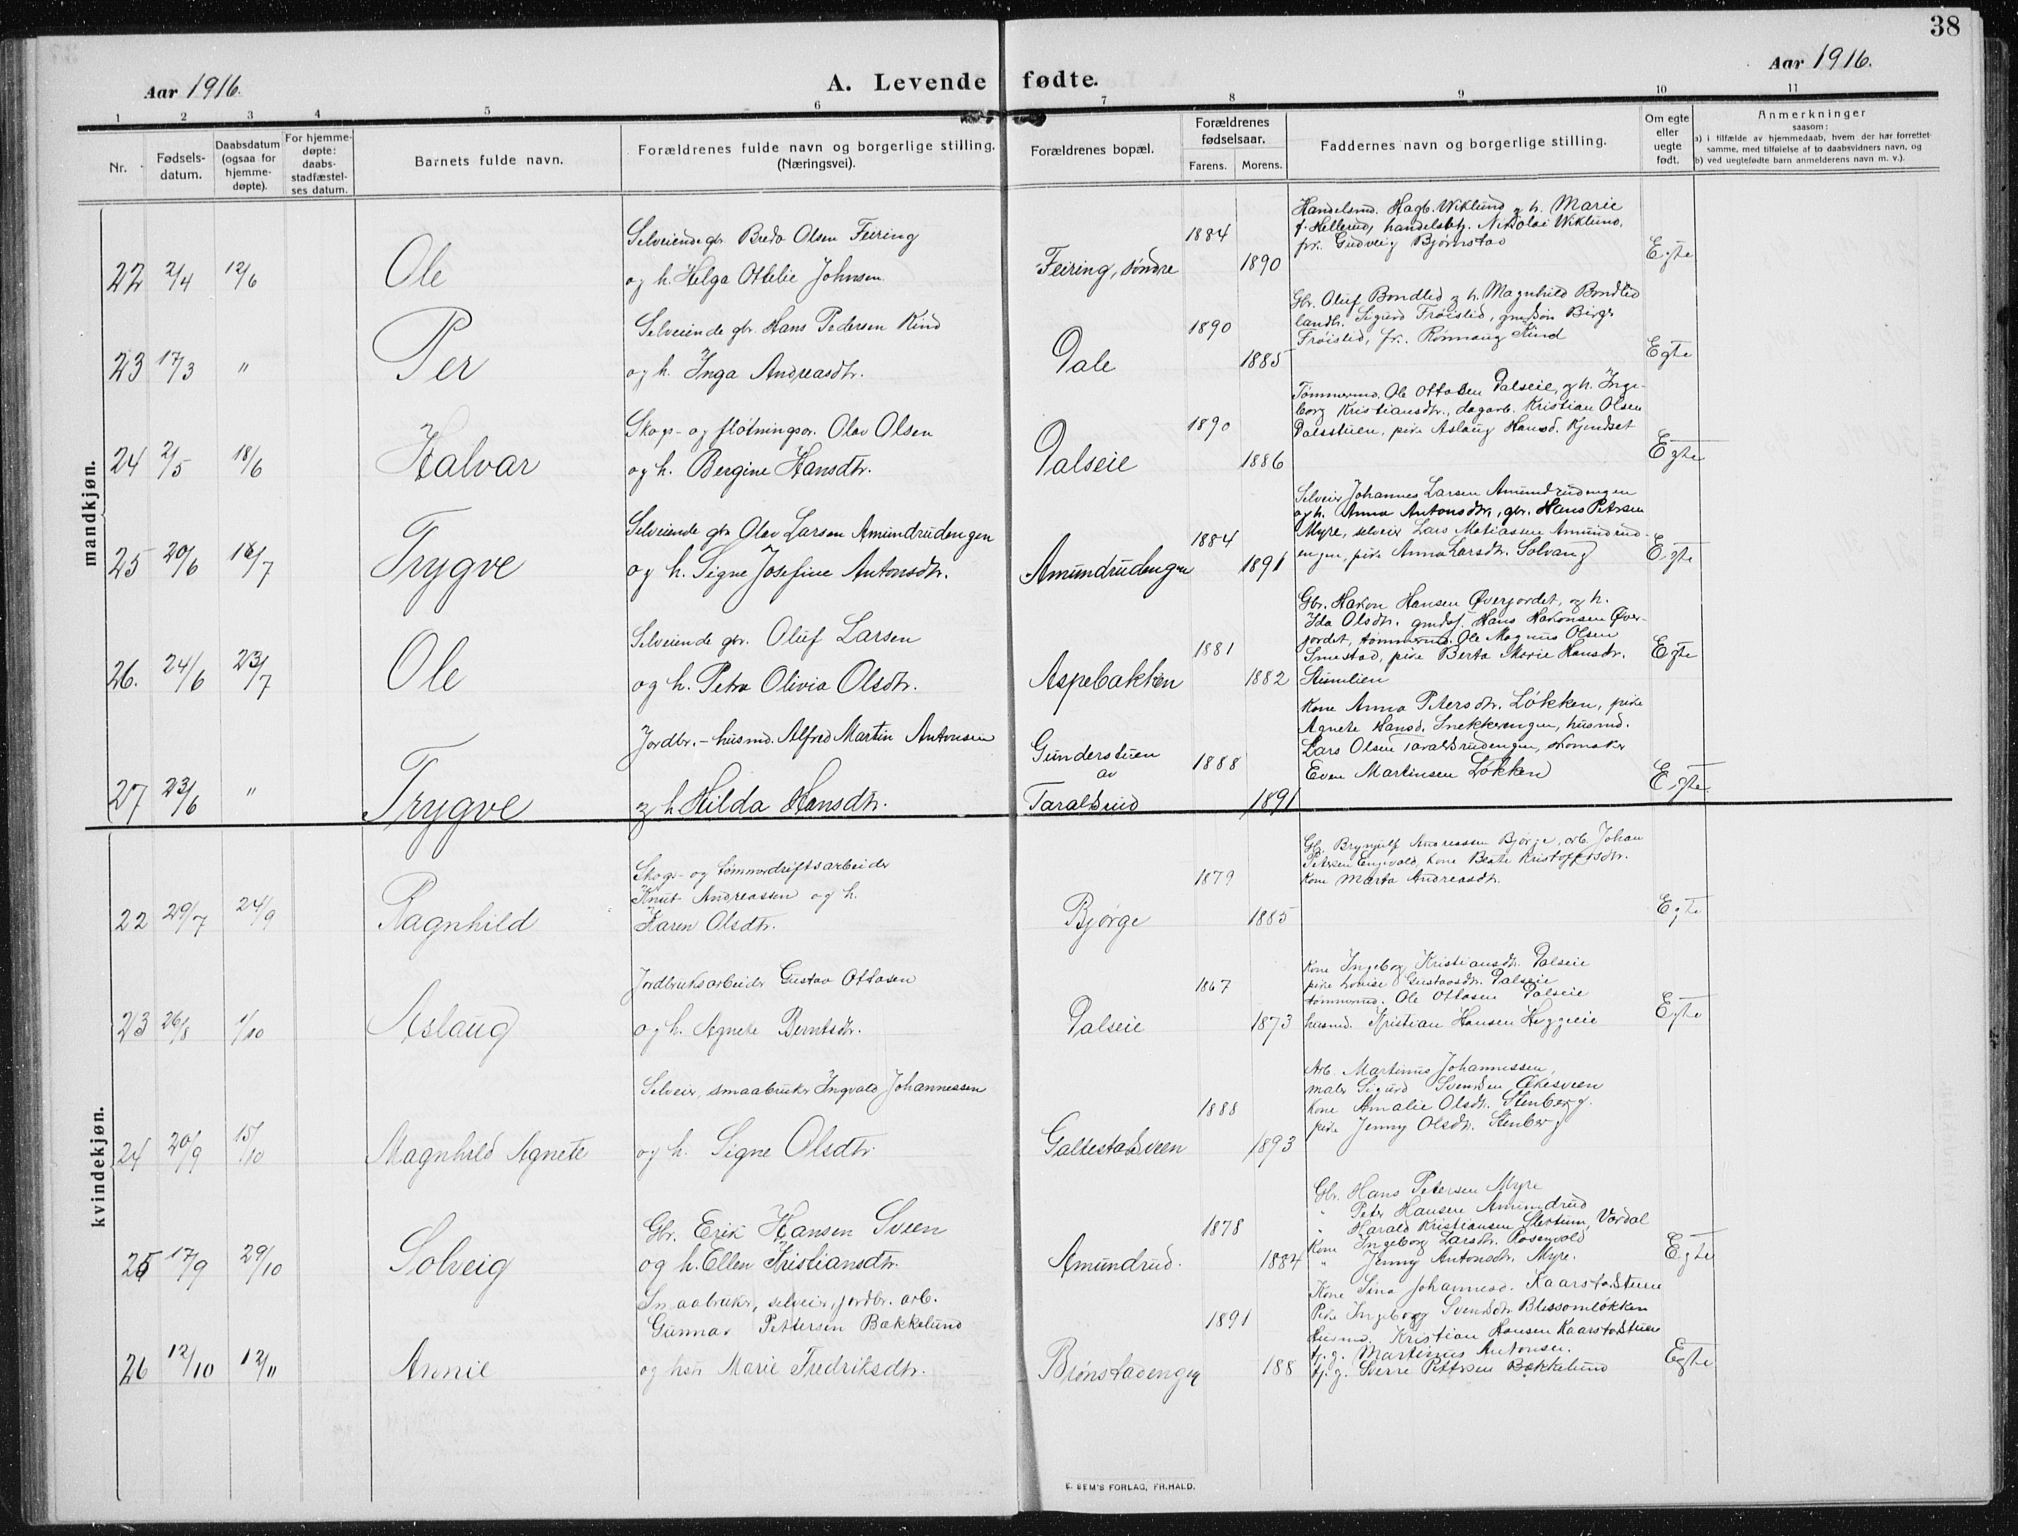 38
Aar 1916.
A. Levende fødte.
Aar 1916.
1 2 3 4 5 6 7 8 9 10 11
Nr.
Fødsels-
datum.
Daabsdatum
(ogsaa for
hjemme-
døpte).
For hjemme-
døpte:
daabs-
stadfæstel-
ses datum.
Barnets fulde navn.
Forældrenes fulde navn og borgerlige stilling.
(Næringsvei).
Forældrenes bopæl.
Forældrenes
fødselsaar.
Farens. Morens.
Faddernes navn og borgerlige stilling.
Om egte
eller
uegte
født.
Anmerkninger
saasom:
a) i tilfælde av hjemmedaab, hvem der har forrettet
samme, med tilføielse af to daabsvidners navn, og
b) ved uegtefødte barn anmelderens navn m. v.).
mandkjøn.
22 2/4 12/6 Ole
Selveiende gbr. Bredo Olsen Feiring
og h. Helga Ottelie Johnsen
Feiring, søndre
1884
1890
Handelsmd. Hagb. Wiklund og h. Marie
f. Hellerud, handelsbetj. Nikolai Wiklund,
pr. Gudveig Bjørnstad
Egte
23 17/3 " Per
Selveiende gbr. Hans Pedersen Kind
og h. Inga Andreasdtr.
Dale
1890
1885
Gbr. Oluf Bondlid og h. Magnhild Bondlid
landh. Sigurd Frøislid, gmdsøn Birger
Frøislid, fr. Rønnaug Kind
Egte
24 2/5 18/6 Halvar
Skogs- og fløtningsar. Olav Olsen
og h. Bergine Hansdtr.
Dalseie
1890
1886
Tømmermd. Ole Ottosen Dalseie, og h. Inge-
borg Kristiansdtr., dagarb. Kristian Olsen
Dalsstuen, pike Aslaug Hansd. Kjendset
Egte
25 20/6 16/7 Trygve
Selveiende gbr. Olav Larsen Amundrudengen
og h. Signe Josefine Antonsdtr.
Amundrudengen
1884
1891
Selveier Johannes Larsen Amundrudengen
og h. Anna Antonsdtr., gbr. Hans Petersen
Myre, selveier Lars Matiassen Amundrud-
engen, pike Anna Larsdtr. Solvang
Egte
26. 24/6 23/7 Ole
Selveiende gbr. Oluf Larsen
og h. Petra Olivia Olsdtr.
Aspebakken
1881
1882
Gbr. Hakon Hansen Øverjordet, og h.
Ida Olsdtr. gmdsf. Hans Hakonsen Øver-
jordet, tømmermd. Ole Magnus Olsen
Smestad, pike Berta Marie Hansdtr.
Stumlien
Egte
27 23/6 " Trygve
Jordbr. - husmd. Alfred Martin Antonsen
og h. Hilda Hansdtr.
Gunderstuen
av
Taralsrud
1888
1891
Kone Anna Petersdtr. Løkken, pike
Agnete Hansd. Snekkerengen, husmd.
Lars Olsen Taralsrudengen, skomaker
Even Martinsen Løkken
Egte
kvindekjøn.
22 29/7 24/9 Ragnhild
Skogs- og tømmerdriftsarbeider
Knut Andreassen og h.
Karen Olsdtr.
Bjørge
1879
1885
Gb. Brynjulf Andreassen Bjørge, arb. Johan
Petersen Engevold, kone Beate Kristoffersdtr.
Kone Marta Andreasdtr.
Egte
23 26/8 1/10 Aslaug
Jordbruksarbeider Gustav Ottosen
og h. Agnete Berntsdtr.
Dalseie
1867
1873
Kone Ingeborg Kristiansdtr. Dalseie
pike Lovise Gustavsdtr. Dalseie
tømmermd. Ole Ottosen Dalseie
husmd. Kristian Hansen Heggeeie
Egte
24 20/9 15/10 Magnhild Agnete
Selveier, smaabruker Ingvald Johannessen
og h. Signe Olsdtr.
Galtestadsveen
1888
1893
Arb. Martinus Johannessen,
maler Sigurd Svendsen Økesveen
Kone Amalie Olsdtr. Stenberg.
pike Jenny Olsdtr. Stenberg
25 17/9 29/10 Solveig
Gbr. Erik Hansen Sveen
og h. Ellen Kristiansdtr.
Amundrud.
1878
1884
Gbr. Hans Petersen Myre
" Peter Hansen Amundrud
" Harald Kristiansen Slettum, Vardal
Kone Ingeborg Larsdtr. Rosenvold
" Jenny Antonsdtr. Myre.
Egte
26 12/10 12/11 Annie
Smaabruker, selveier, jordbr. arb.
Gunnar Pettersen Bakkelund
og hstr Marie Fredriksdtr.
Brønstadengen
1891
188
Kone Sina Johannesd. Kaarstadstuen
Pike Ingeborg Svendsdtr. Blessomløkken
Husmd. Kristian Hansen Kaarstadstuen
tj. g. Martinus Antonsen.
tj. g. Sverre Pettersen Bakkelund
Egte
E. SEM'S FORLAG, FR.HALD.